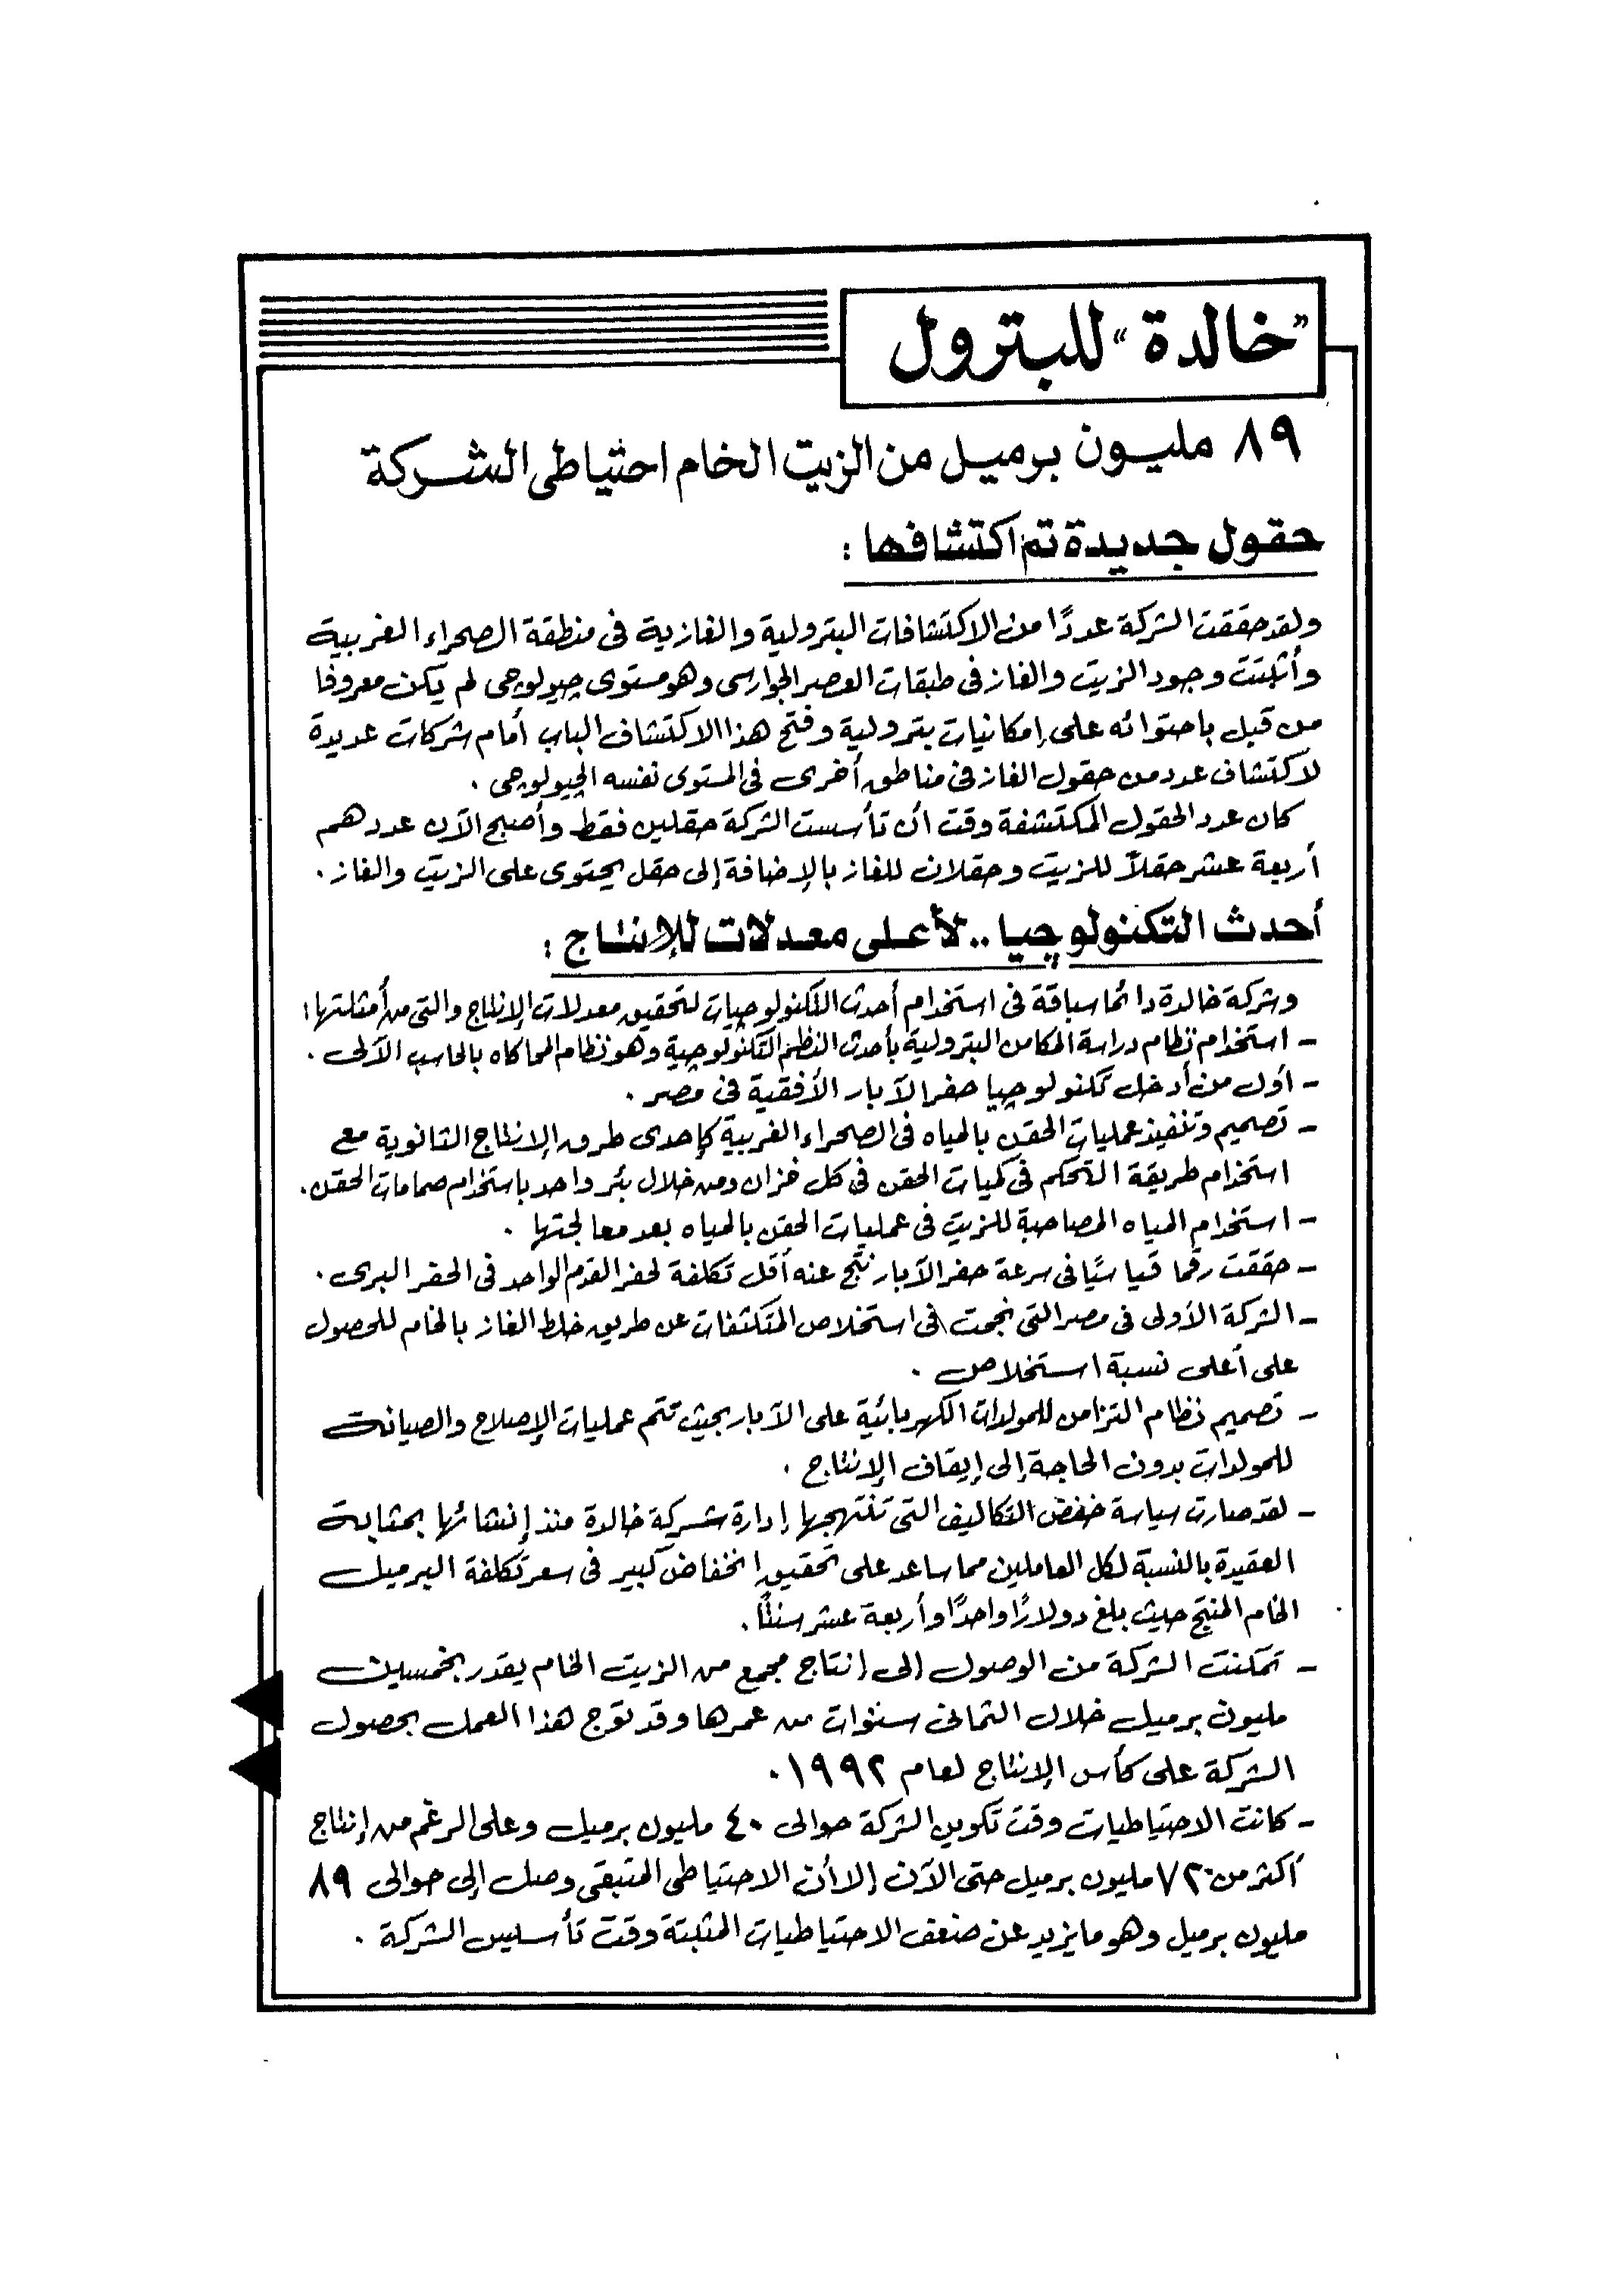 "خالدة" للبترول
٨٩ مليون برميل من الزيت الخام احتياطى الشركة
حقول جديدة تم اكتشافها :
ولقد حققت الشركة عددًا من الاكتشافات البترولية والغازية فى منطقة الصحراء الغربية
وأثبتت وجود الزيت والغاز فى طبقات العصر الجوارسى وهو مستوى چيولوچى لم يكن معروفا
من قبل باحتوائه على إمكانيات بترولية وفتح هذا الاكتشاف الباب أمام شركات عديدة
لاكتشاف عدد من حقول الغاز فى مناطق أخرى فى المستوى نفسه الچيولوچى .
كان عدد الحقول المكتشفة وقت أن تأسست الشركة حقلين فقط وأصبح الآن عددهم
أربعة عشر حقلاً للزيت وحقلان للغاز بالإضافة إلى حقل يحتوى على الزيت والغاز .
أحدث التكنولوچيا .. لأعلى معدلات للإنتاج :
وشركة خالدة دائما سباقة فى استخدام أحدث التكنولوچيات لتحقيق معدلات الإنتاج والتى من أمثلتها :
- استخدام نظام دراسة المكامن البترولية بأحدث النظم التكنولوچية وهو نظام المحاكاه بالحاسب الآلى .
- أول من أدخل تكنولوچيا حفر الآبار الأفقية فى مصر .
- تصميم وتنفيذ عمليات الحقن بالمياه فى الصحراء الغربية كإحدى طرق الإنتاج الثانوية مع
استخدام طريقة التحكم فى كميات الحقن فى كل خزان ومن خلال بئر واحد باستخدام صمامات الحقن .
- استخدام المياه المصاحبة للزيت فى عمليات الحقن بالمياه بعد معالجتها .
- حققت رقما قياسيًا فى سرعة حفر الآبار نتج عنه أقل تكلفة لحفر القدم الواحد فى الحفر البرى .
- الشركة الأولى فى مصر التى نجحت فى استخلاص المتكثفات عن طريق خلط الغاز بالخام للحصول
على أعلى نسبة استخلاص .
- تصميم نظام التزامن للمولدات الكهربائية على الآبار بحيث تتم عمليات الإصلاح والصيانة
للمولدات بدون الحاجة إلى إيقاف الإنتاج .
- لقد صارت سياسة خفض التكاليف التى تنتهجها إدارة شركة خالدة منذ إنشائها بمثابة
العقيدة بالنسبة لكل العاملين مما ساعد على تحقيق انخفاض كبير فى سعر تكلفة البرميل
الخام المنتج حيث بلغ دولارًا واحدًا وأربعة عشر سنتًا .
- تمكنت الشركة من الوصول إلى إنتاج مجمع من الزيت الخام يقدر بخمسين
مليون برميل خلال الثمانى سنوات من عمرها وقد توج هذا العمل بحصول
الشركة على كأس الإنتاج لعام ١٩٩٢ .
- كانت الاحتياطيات وقت تكوين الشركة حوالى ٤٠ مليون برميل وعلى الرغم من إنتاج
أكثر من ٧٢ مليون برميل حتى الآن إلا أن الاحتياطى المتبقى وصل إلى حوالى ٨٩
مليون برميل وهو ما يزيد عن ضعف الاحتياطيات المثبتة وقت تأسيس الشركة .